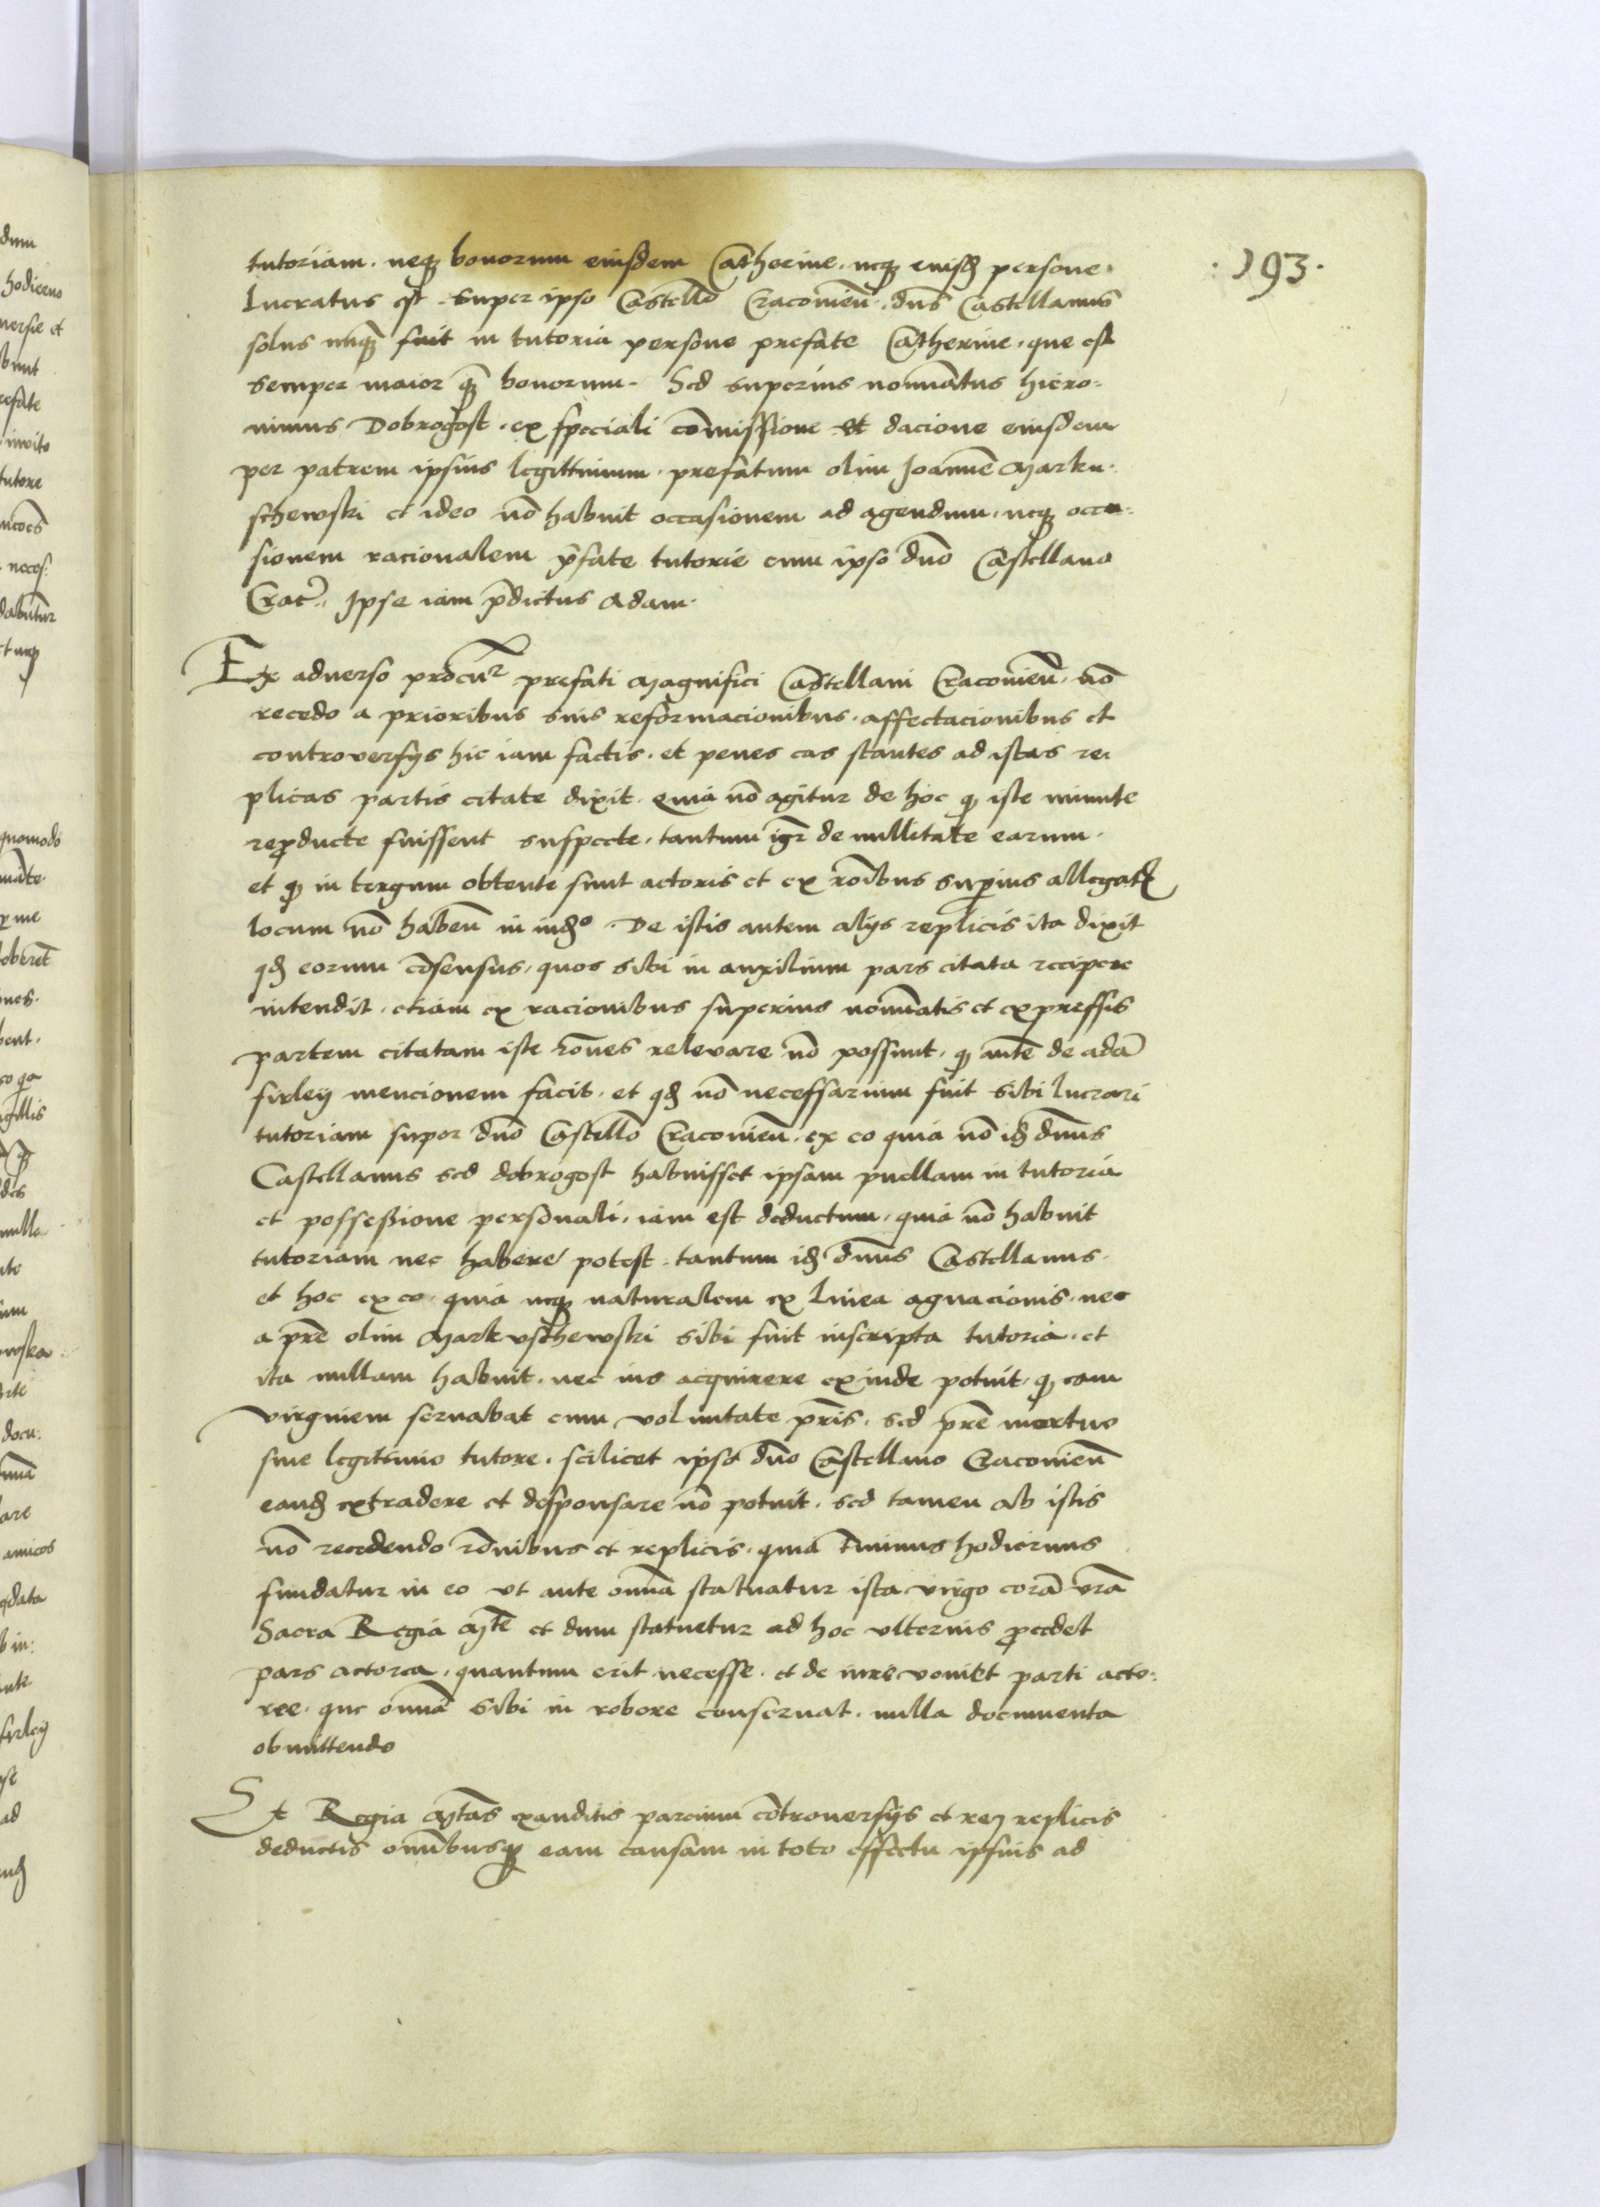 ·193·
tutoriam. neqȝ bonorum eiusdem Catherine. neqȝ eiusdȝ persone.
Lucratus est. super ipso Castello Cracovieñ. dñs Castellanus
solus nūqȝ fuit in tutoria persone prefate Catherine. que est
semper maior qȝ bonorum. Sed superius nominatus hiero=
nimus Dobrogost. ex speciali cōmissione et dacione eiusdem
per patrem ipsius legittimum. prefatum olim Joannē Marku=
schewski et ideo nō habuit occasionem ad agendum. neqȝ occa=
sionem racionalem p̄fate tutorie cum ipso dño Castellano
Crac̄. Ipse iam p̄dictus Adam.
Ex adverso procur prefati Magnifici Castellani Cracovieñ. nō
recedo a prioribus suis reformacionibus. affectacionibus et
controversijs hic iam factis. et penes eas stantes ad istas re=
plicas partis citate dixit. quia nō agitur de hoc qȝ iste minute
reproducte fuissent suspecte. tantum igr de nullitate earum.
et qȝ in tergum obtente sunt actoris et ex rōibus superius allegatȝ
locum nō habeñ in iudº. De istis autem alijs replicis ita dixit
qdȝ eorum cōsensus. quos sibi in auxilium pars citata recipere
intendit. etiam ex racionibus superius nominatis et expressis
partem citatam iste rōnes relevare nō possunt. qȝ autē de adā
firley mencionem facit. et qdȝ nō necessarium fuit sibi lucrari
tutoriam super dño Castello Cracovieñ. ex eo quia nō idȝ dñus
Castellanus sed dobrogost habuisset ipsam puellam in tutoria
et possessione personali. iam est deductum. quia nō habuit
tutoriam nec habere potest. tantum idȝ dñus Castellanus.
et hoc ex eo. quia neqȝ naturalem ex linea agnacionis. nec
a prē olim Markuschewski sibi fuit inscripta tutoria. et
ita nullam habuit. nec ius acquirere exinde potuit. qȝ eam
virginem servabat cum voluntate pr̄is. sed prē mortuo
sine legitimo tutore. scilicet ipso dño Castellano Cracovieñ
eandȝ extradere et desponsare nō potuit. sed tamen ab istis
nō recedendo rōnibus et replicis. quia t̄minus hodiernus
fundatur in eo ut ante oīna statuatur ista virgo corā vrā
Sacra Regia Mte et dum statuetur ad hoc ulterius procedet
pars actorea. quantum erit necesse. et de iure veniet parti acto=
ree. que oīna sibi in robore conservat. nulla documenta
obmittendo
Et Regia Mtas exauditis parcium cōtroversijs et reȝ replicis
deductis omnibusqȝ eam causam in toto effectu ipsius ad